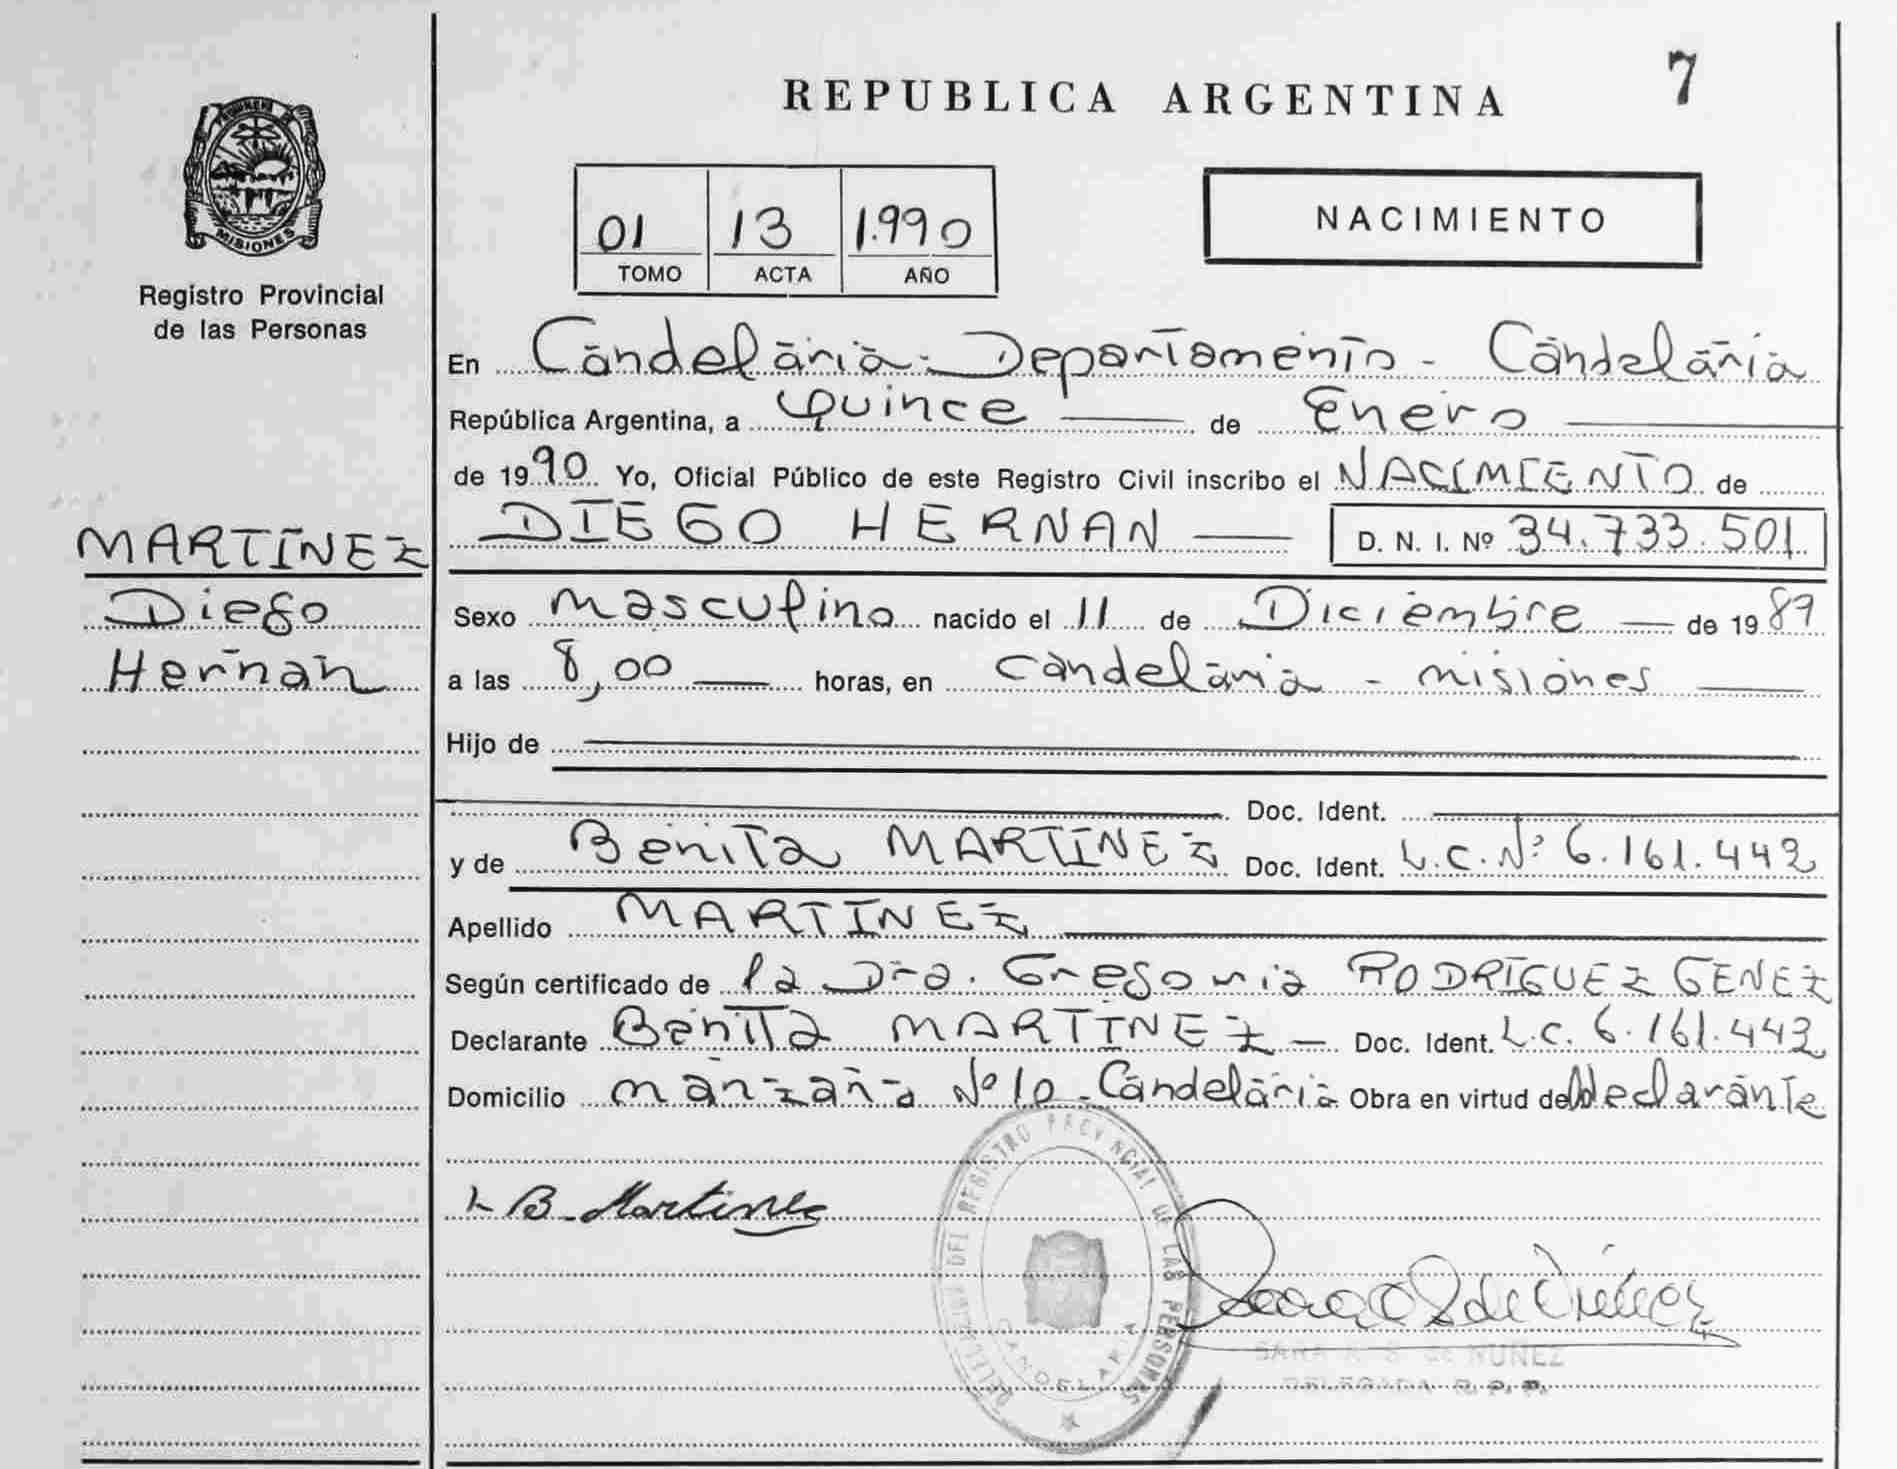 7
REPUBLICA ARGENTINA
MISIONES
Registro Provincial
de las Personas
01 13 1.990
TOMO ACTA AÑO
NACIMIENTO
En Candelaria - Departamento - Candelaria
República Argentina, a Quince de Enero
de 1990 Yo, Oficial Público de este Registro Civil inscribo el NACIMIENTO de
MARTINEZ
Diego
Hernan
DIEGO HERNAN D. N. I. Nº 34.733.501
Sexo masculino nacido el 11 de Diciembre de 1989
a las 8,00 horas, en Candelaria - misiones
Hijo de
Doc. Ident.
y de Benita MARTINEZ Doc. Ident. L.C. Nº 6.161.442
Apellido MARTINEZ
Según certificado de la Dra. Gregoria RODRIGUEZ GENEZ
Declarante Benita MARTINEZ - Doc. Ident. L.C. 6.161.442
Domicilio manzana Nº 10 - Candelaria Obra en virtud de declarante
B. Martinez
DELEGADA DEL REGISTRO PROVINCIAL DE LAS PERSONAS
CANDELARIA
de NUÑEZ
DELEGADA R. P. P.